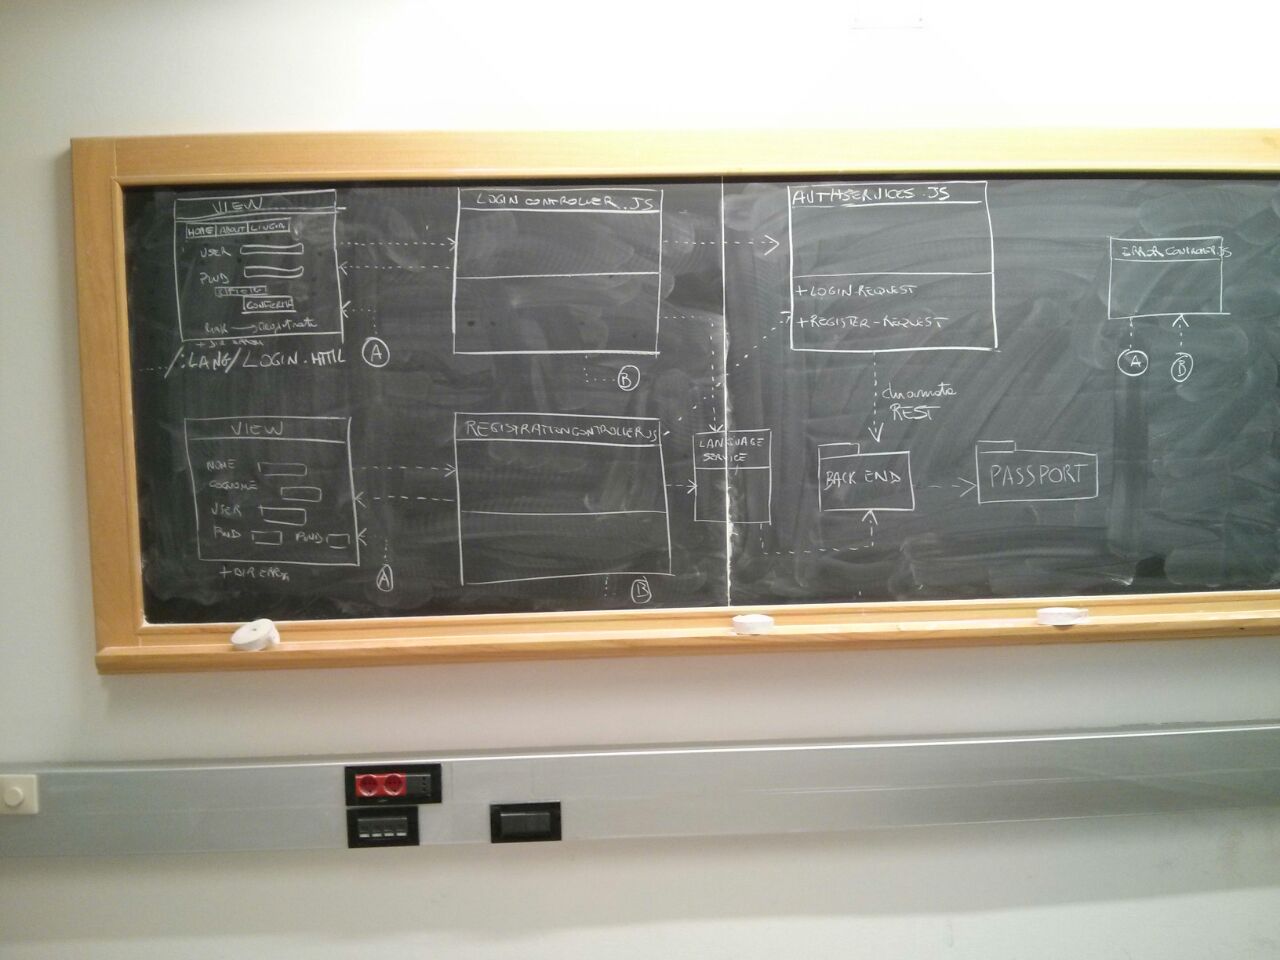 VIEW
HOME ABOUT LINGUA
USER
PWD
CONFERMA
/:LANG/LOGIN.HTML
A
LOGIN CONTROLLER.JS
B
AUTHSERVICES.JS
+LOGIN-REQUEST
+REGISTER-REQUEST
chiamata
REST
ERRORCONTROLLER.JS
A
B
VIEW
NOME
COGNOME
USER
PWD PWD
+DIR ERR
A
REGISTRATIONCONTROLLER.JS
B
LANGUAGE
SERVICE
BACK END
PASSPORT